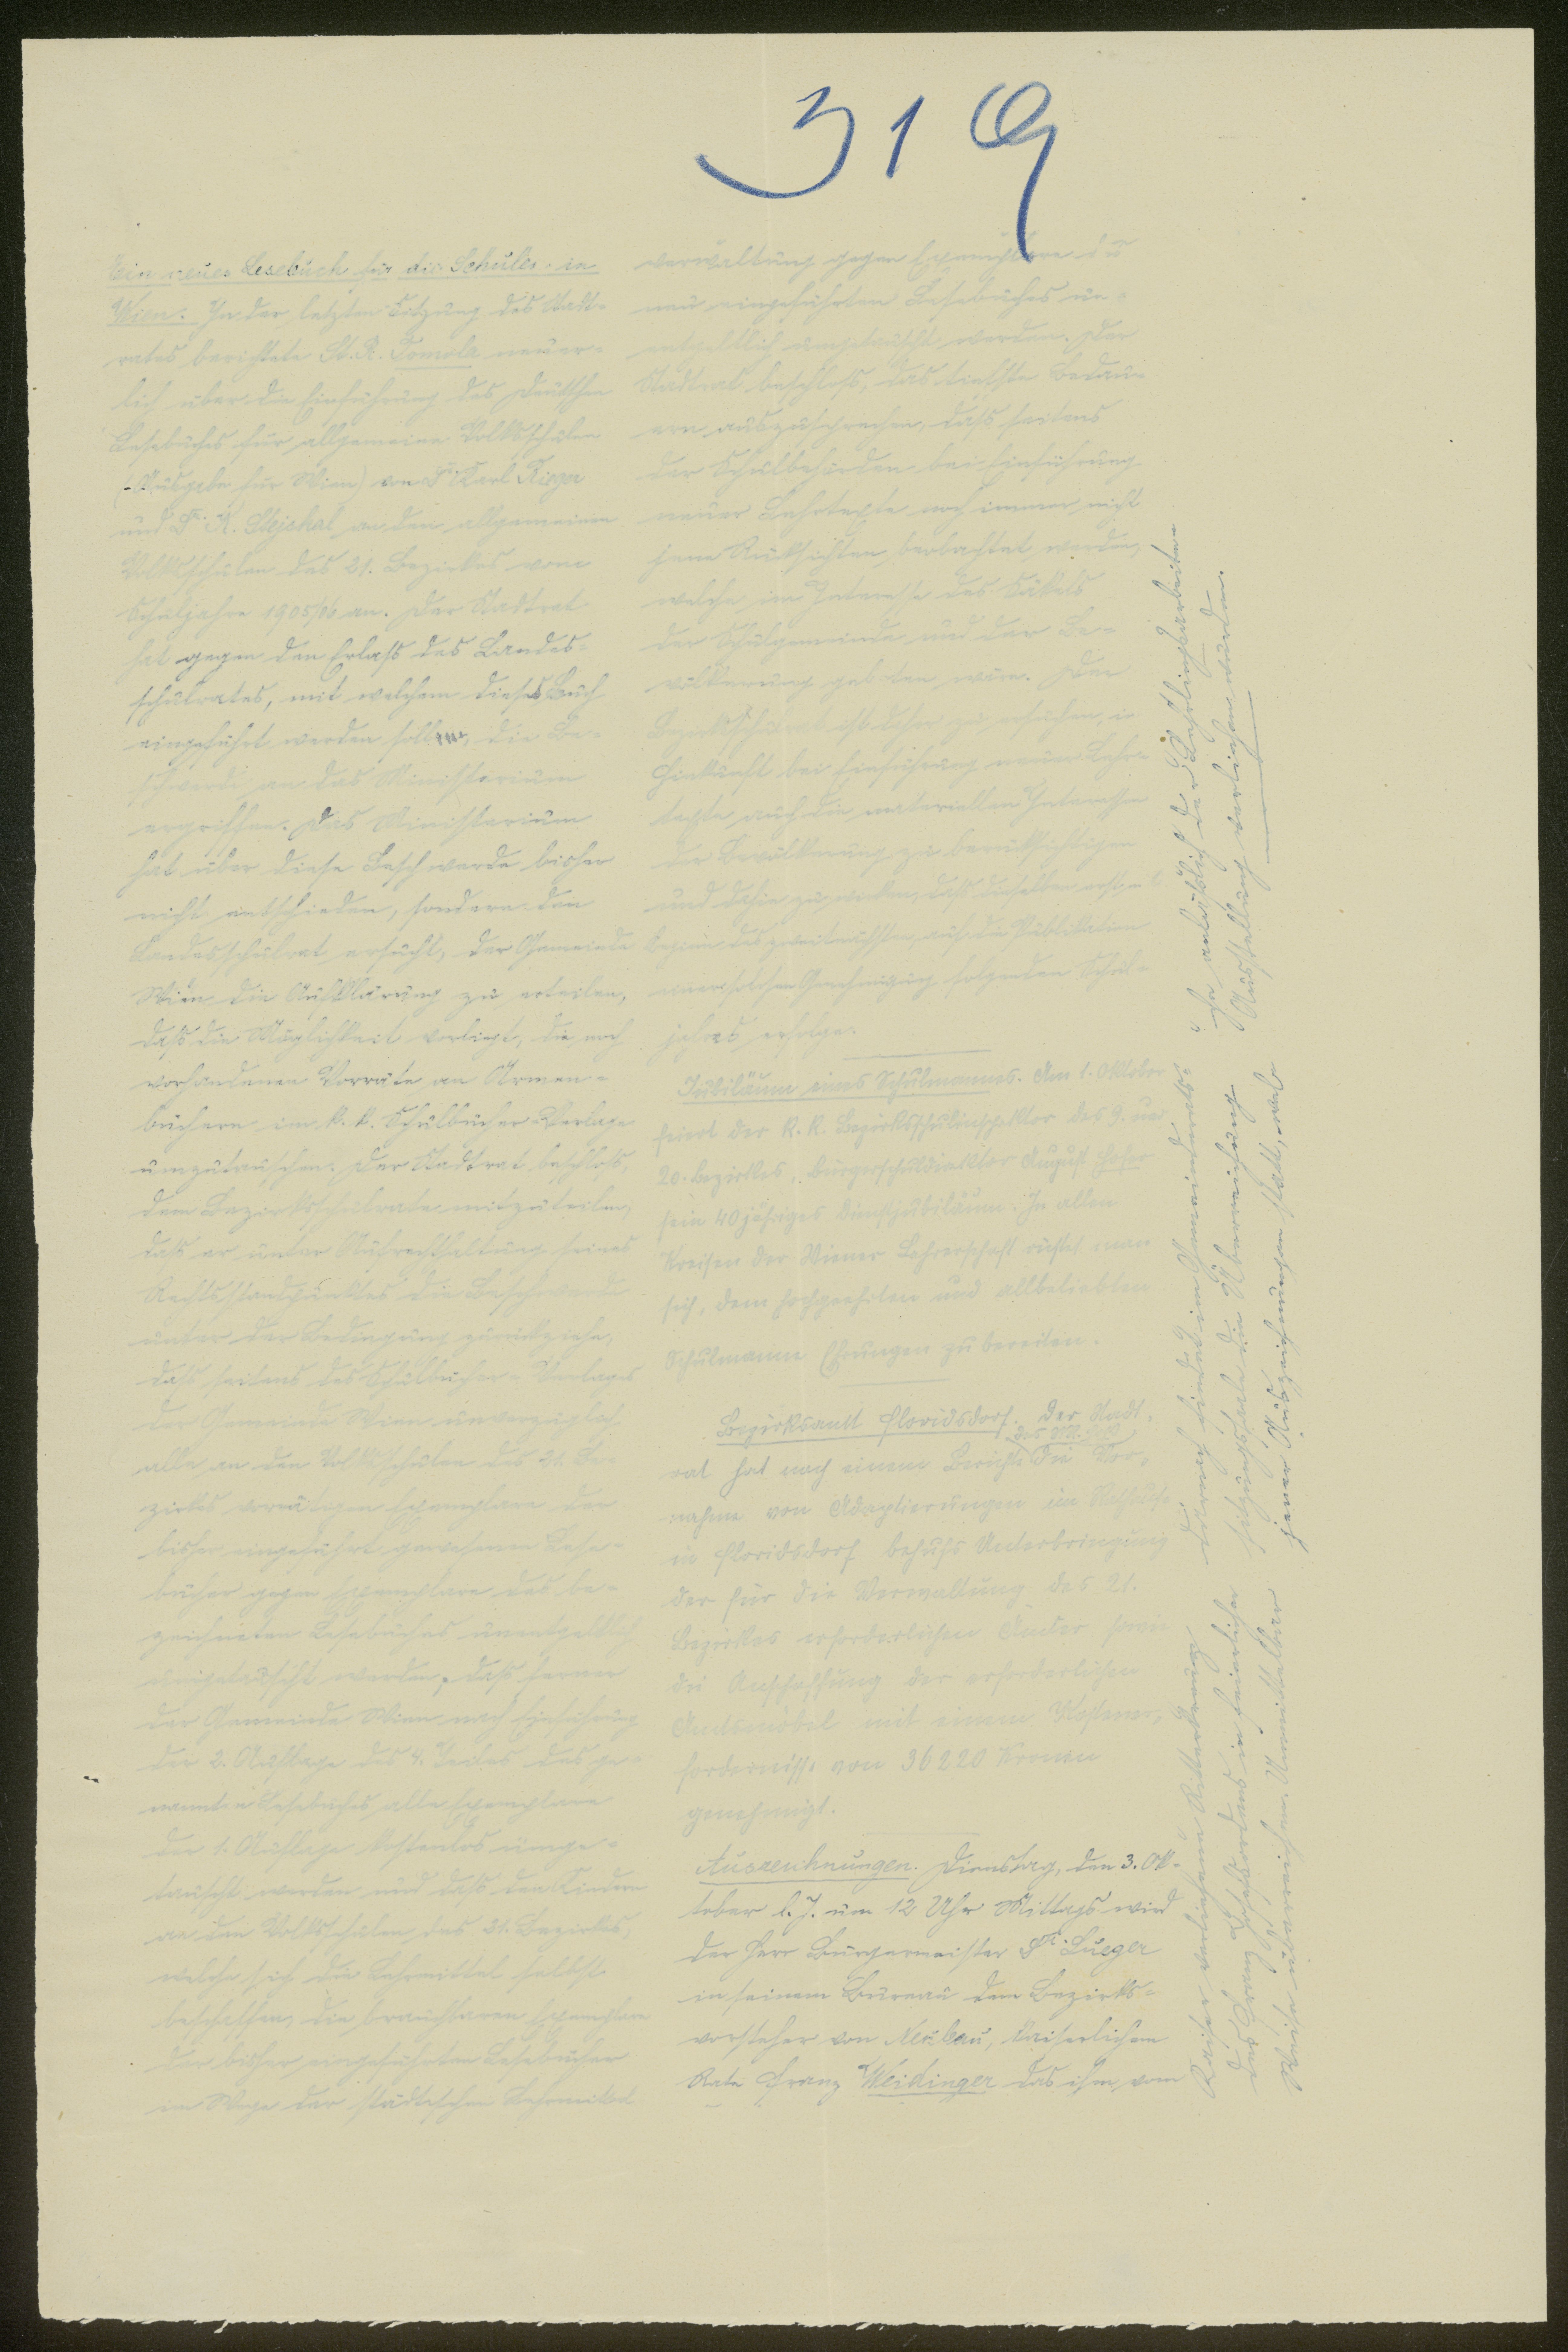 319
Ein neues Lesebuch für die Schulen in
Wien. In der letzten Sitzung des Stadt-
rates berichtete St. R. Tomola neuer-
lich über die Einführung des Deutschen
Lesebuches für allgemeine Volksschulen
(Ausgabe für Wien) von Dr. Karl Rieger
und Dr. K. Stejskal an den allgemeinen
Volksschulen des 21. Bezirkes vom
Schuljahre 1905/06 an. Der Stadtrat
hat gegen den Erlaß des Landes-
schulrates, mit welchem dieses Buch
eingeführt werden soll, die Be-
schwerde an das Ministerium
ergriffen. Das Ministerium
hat über diese Beschwerde bisher
nicht entschieden, sondern den
Landesschulrat ersucht, der Gemeinde
Wien die Aufklärung zu erteilen,
daß die Möglichkeit vorliegt, die noch
vorhandenen Vorräte an Armen-
büchern im k. k. Schulbücher-Verlage
umzutauschen. Der Stadtrat beschloß,
dem Bezirksschulrate mitzuteilen,
daß er unter Aufrechthaltung seines
Rechtsstandpunktes die Beschwerde
unter der Bedingung zurückziehe,
daß seitens des Schulbücher-Verlages
der Gemeinde Wien unverzüglich
alle an den Volksschulen des 21. Be-
zirkes vorrätigen Exemplare der
bisher eingeführt gewesenen Lese-
bücher gegen Exemplare des be-
zeichneten Lesebuches unentgeltlich
umgetauscht werden, daß ferner
der Gemeinde Wien nach Einführung
der 2. Auflage des 4. Teiles des ge-
nannten Lesebuches alle Exemplare
der 1. Auflage kostenlos umge-
tauscht werden und daß den Kindern
an den Volksschulen des 21. Bezirkes,
welche sich die Lehrmittel selbst
beschaffen, die brauchbaren Exemplare
der bisher eingeführten Lesebücher
im Wege der städtischen Lehrmittel-
verwaltung gegen Exemplare des
neu eingeführten Lesebuches un-
entgeltlich umgetauscht werden. Der
Stadtrat beschloß, das tiefste Bedau-
ern auszusprechen, daß seitens
der Schulbehörden bei Einführung
neuer Lehrtexte noch immer nicht
jene Rücksichten beobachtet werden,
welche im Interesse des Säckels
der Schulgemeinde und der Be-
völkerung geboten wären. Der
Bezirksschulrat ist daher zu ersuchen, in
Hinkunft bei Einführung neuer Lehr-
texte auch die materiellen Interessen
der Bevölkerung zu berücksichtigen
und dahin zu wirken, daß dieselben erst mit
Beginn des zweitnächsten, auf die Publikation
einer solchen Genehmigung folgenden Schul-
jahres erfolge.
Jubiläum eines Schulmannes. Am 1. Oktober
feiert der k. k. Bezirksschulinspektor des 9. und
20. Bezirkes, Bürgerschuldirektor August Hofer
sein 40jähriges Dienstjubiläum. In allen
Kreisen der Wiener Lehrerschaft rüstet man
sich, dem hochgeehrten und allbeliebten
Schulmanne Ehrungen zu bereiten.
Bezirksamt Floridsdorf. Der Stadt-
rat hat nach einem Berichte des die Vor-
nahme von Adaptierungen im Rathause
in Floridsdorf behufs Unterbringung
der für die Verwaltung des 21.
Bezirkes erforderlichen Ämter sowie
die Anschaffung der erforderlichen
Amtsmöbel mit einem Kostener-
fordernisse von 36220 Kronen
genehmigt.
Auszeichnungen. Dienstag, den 3. Ok-
tober l. J. um 12 Uhr Mittags wird
der Herr Bürgermeister Dr. Lueger
in seinem Bureau dem Bezirks-
vorsteher von Neubau, kaiserlichen
Rate Franz Weidinger das ihm vom
Kaiser verliehene Ritterkreuz
des Franz Josefsordens in feierlicher
Weise überreichen. Unmittelbar
darnach findet im Gemeinderats-
sitzungssaale die Überreichung
jener Auszeichnungen statt, welche
anläßlich der Lehrlingsarbeiten
Ausstellung verliehen wurden.